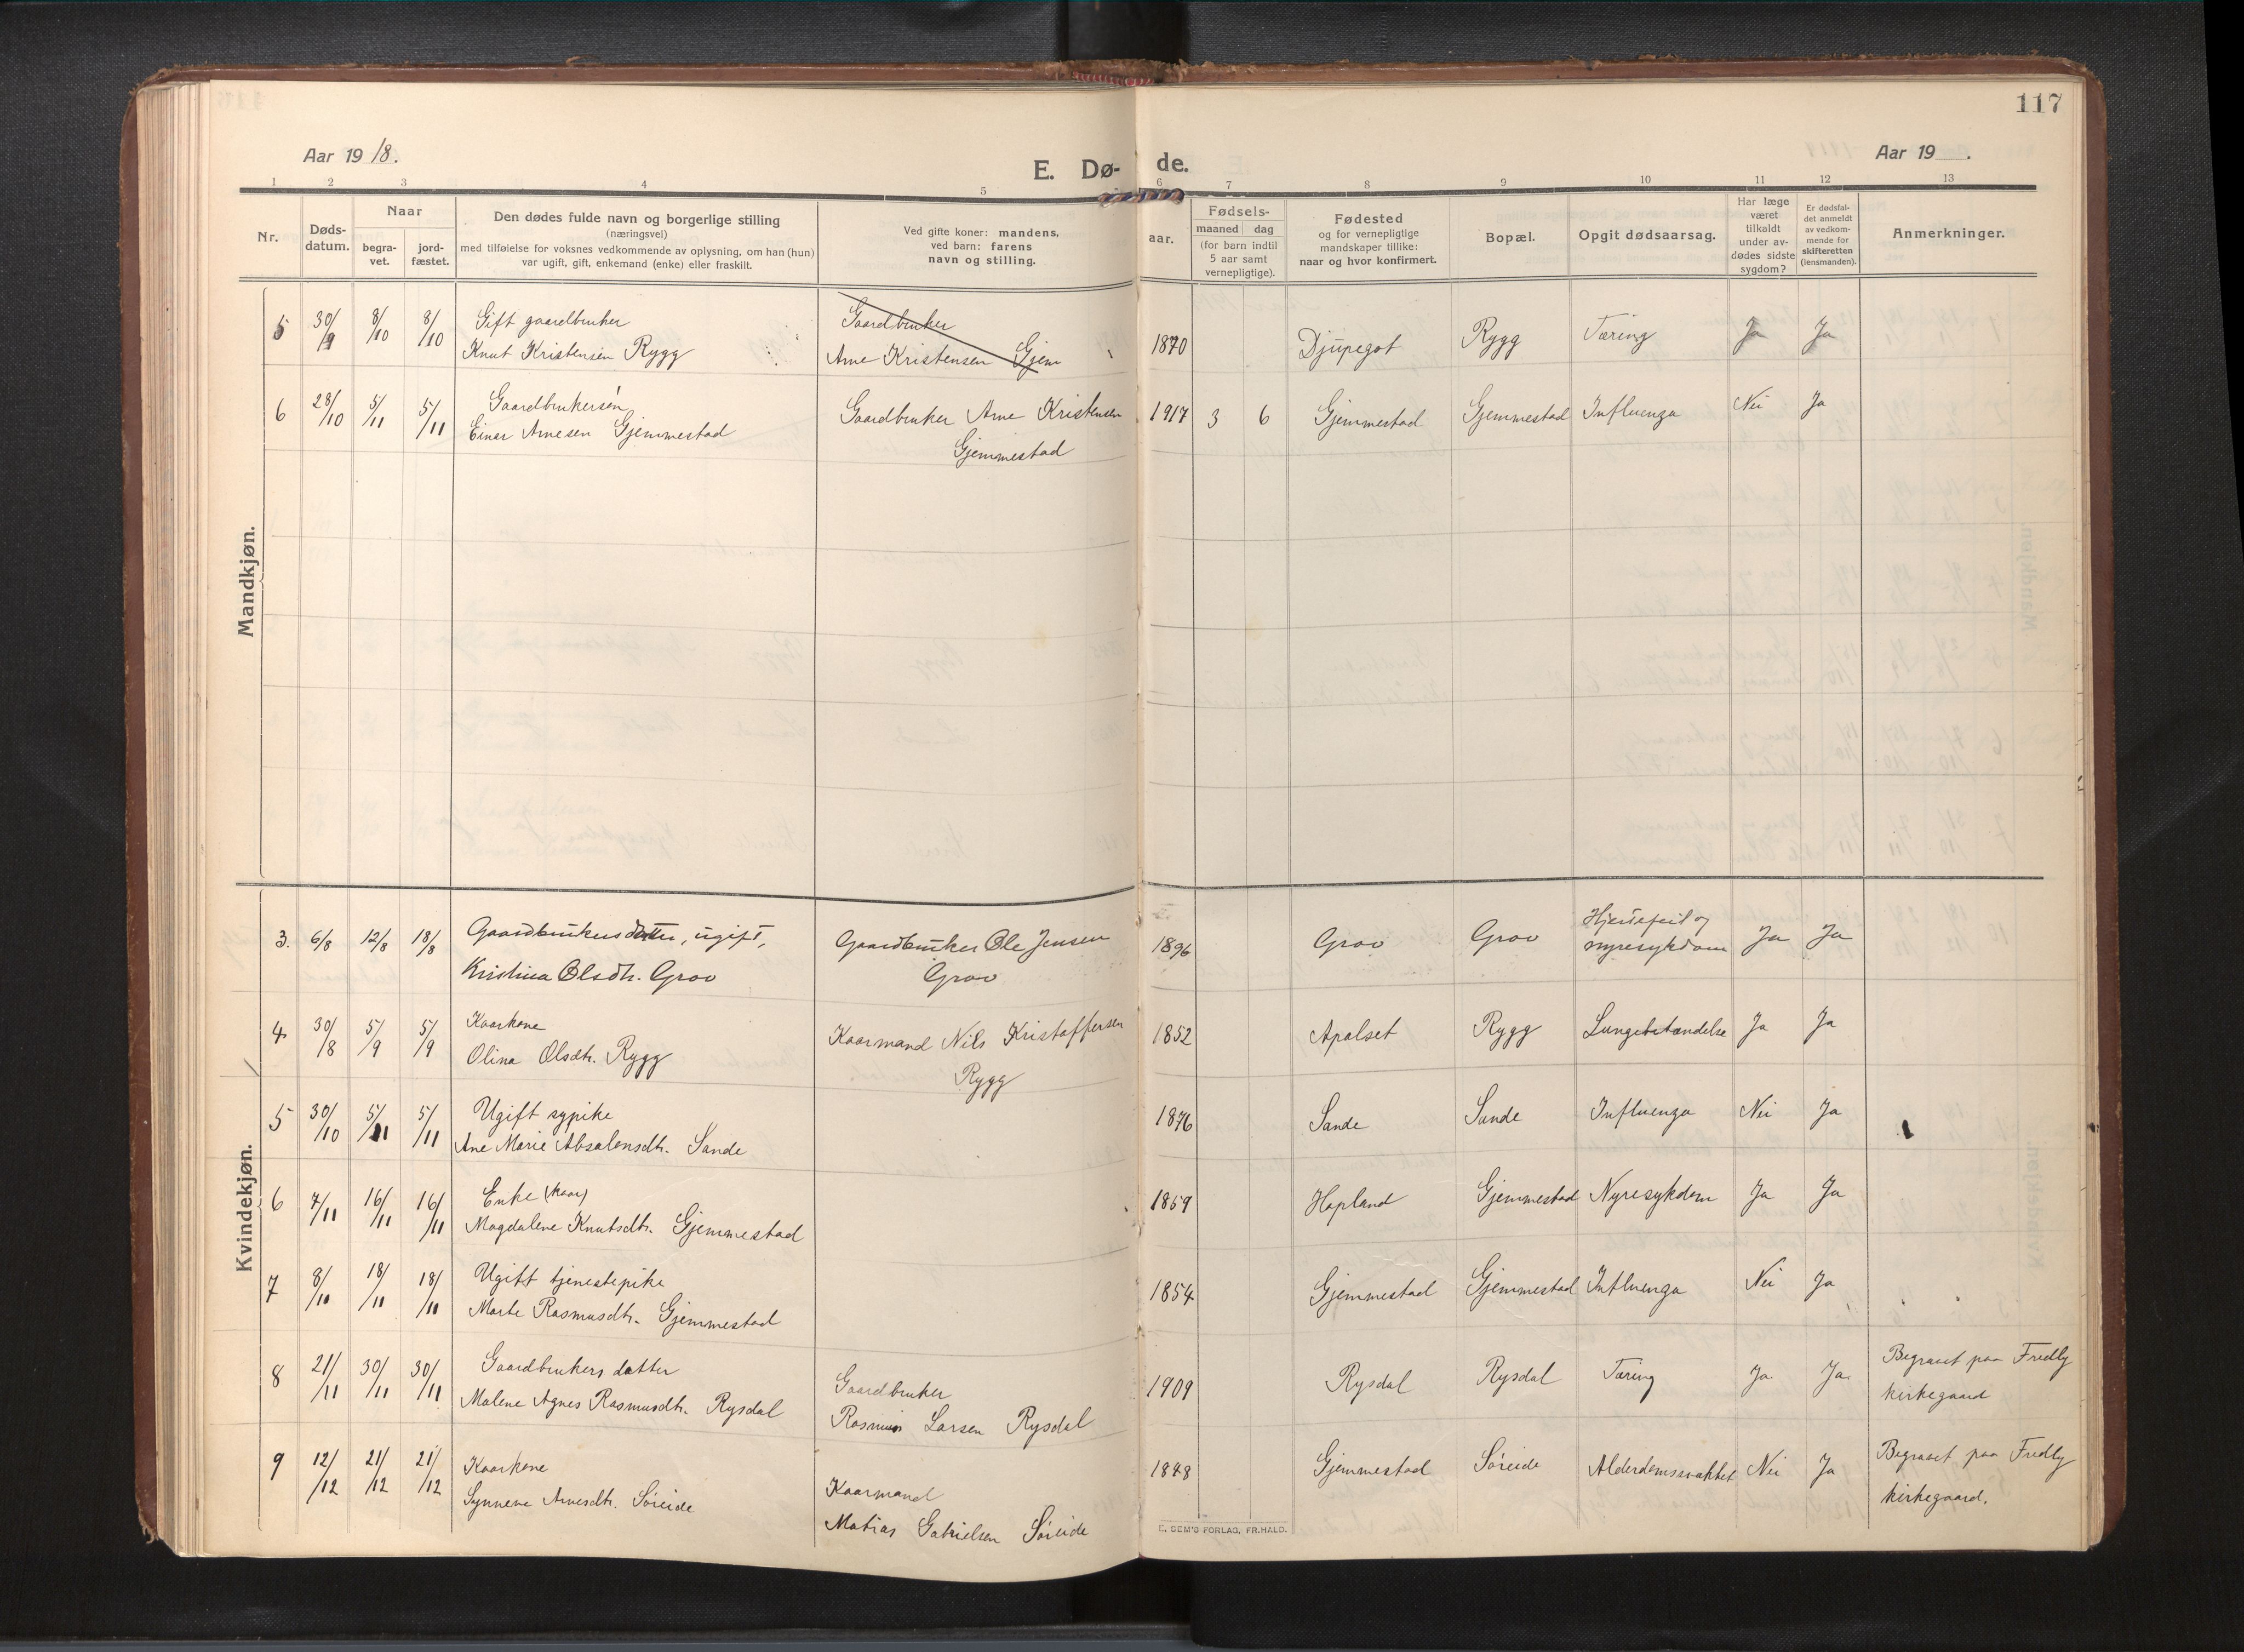 117
Aar 1918.
E. Dø-
de.
Aar 19 .
1 2 3 4 5 6 7 8 9 10 11 12 13
Nr.
Døds-
datum.
Naar
begra-
vet.
jord-
fæstet.
Den dødes fulde navn og borgerlige stilling
(næringsvei)
med tilføielse for voksnes vedkommende av oplysning, om han (hun)
var ugift, gift, enkemand (enke) eller fraskilt.
Ved gifte koner: mandens,
ved barn: farens
navn og stilling.
aar.
Fødsels-
maaned dag
(for barn indtil
5 aar samt
vernepligtige).
Fødested
og for vernepligtige
mandskaper tillike:
naar og hvor konfirmert.
Bopæl.
Opgit dødsaarsag.
Har læge
været
tilkaldt
under av-
dødes sidste
sygdom?
Er dødsfal-
det anmeldt
av vedkom-
mende for
skifteretten
(lensmanden).
Anmerkninger.
Mandkjøn.
5 30/9 8/10 8/10 Gift gaardbruker Gaardbruker
Knut Kristensen Rygg Arne Kristensen Gjem 1870 Djupegot Rygg Tæring Ja Ja
6 28/10 5/11 5/11 Gaardbrukersøn Gaardbruker Arne Kristensen 1917 3 6 Gjemmestad Gjemmestad Influenza Nei Ja
Einar Arnesen Gjemmestad Gjemmestad
Kvindekjøn.
3. 6/8 12/8 18/8 Gaardbrukersdatter, ugift, Gaardbruker Ole Jensen 1896 Grov Grov Hjertefeil og Ja Ja
Kristina Olsdtr. Grov Grov nyresykdom
4 30/8 5/9 5/9 Kaarkone Kaarmand Nils Kristoffersen 1852 Apalset Rygg Lungebetændelse Ja Ja
Olina Olsdtr. Rygg Rygg
5 30/10 5/11 5/11 Ugift sypike 1876 Sande Sande Influenza Nei Ja
Ane Marie Absalonsdtr. Sande
6 7/11 16/11 16/11 Enke (kaar) 1859 Hopland Gjemmestad Nyresykdom Ja Ja
Magdalene Knutsdtr. Gjemmestad
7 8/10 18/11 18/11 Ugift tjenestepike 1854 Gjemmestad Gjemmestad Influenza Nei Ja
Marte Rasmusdtr. Gjemmestad
8 21/11 30/11 30/11 Gaardbrukers datter Gaardbruker 1909 Rysdal Rysdal Tæring Ja. Ja. Begravet paa Fredly
Malene Agnes Rasmusdtr. Rysdal Rasmus Larsen Rysdal kirkegaard
9 12/12 21/12 21/12 Kaarkone Kaarmand 1848 Gjemmestad Søreide Alderdomssvakhet Nei Ja Begravet paa Fredly
Synneve Arnesdtr. Søreide Matias Gabrielsen Søreide kirkegaard.
E. SEM'S FORLAG, FR.HALD.